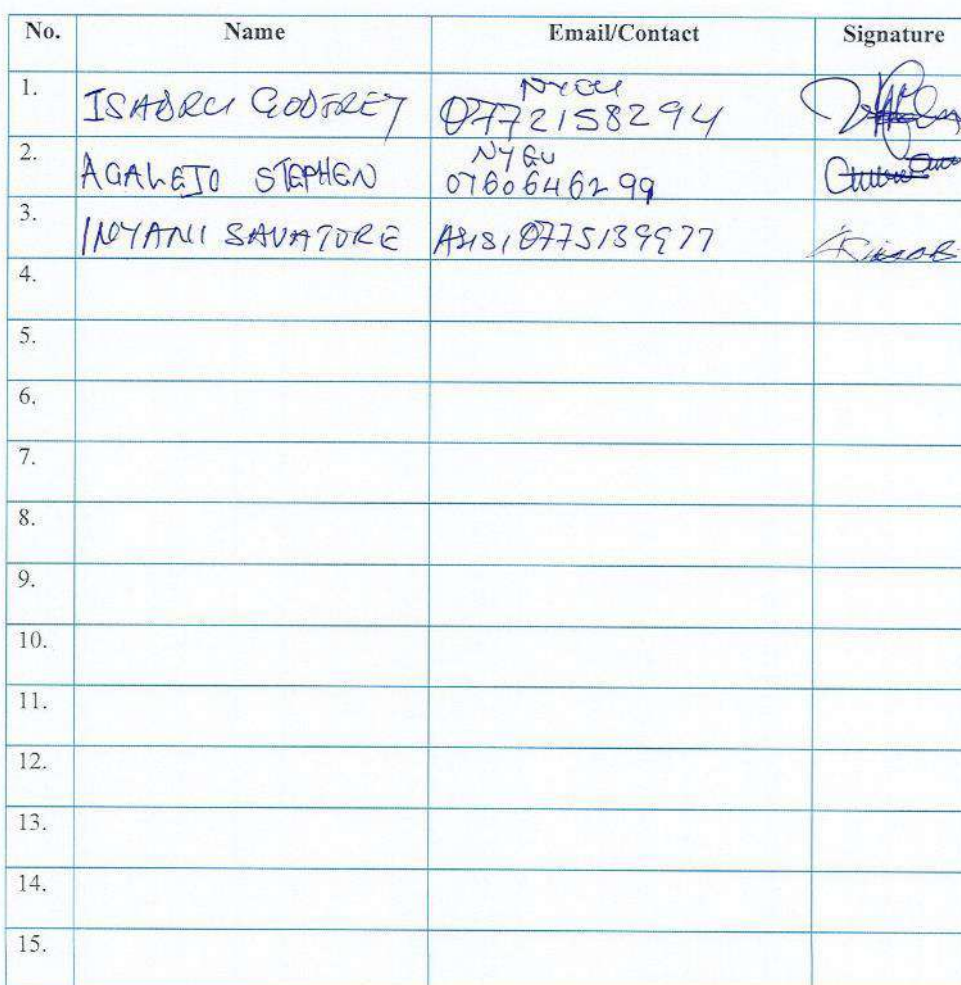 No. Name Email/Contact Signature
1. ISABRU GODFREY NYEU 0772158294
2. AGALEJO STEPHEN NYEU 0760646299
3. INYANI SAVATORE ASISI 0775139977
4.
5.
6.
7.
8.
9.
10.
11.
12.
13.
14.
15.